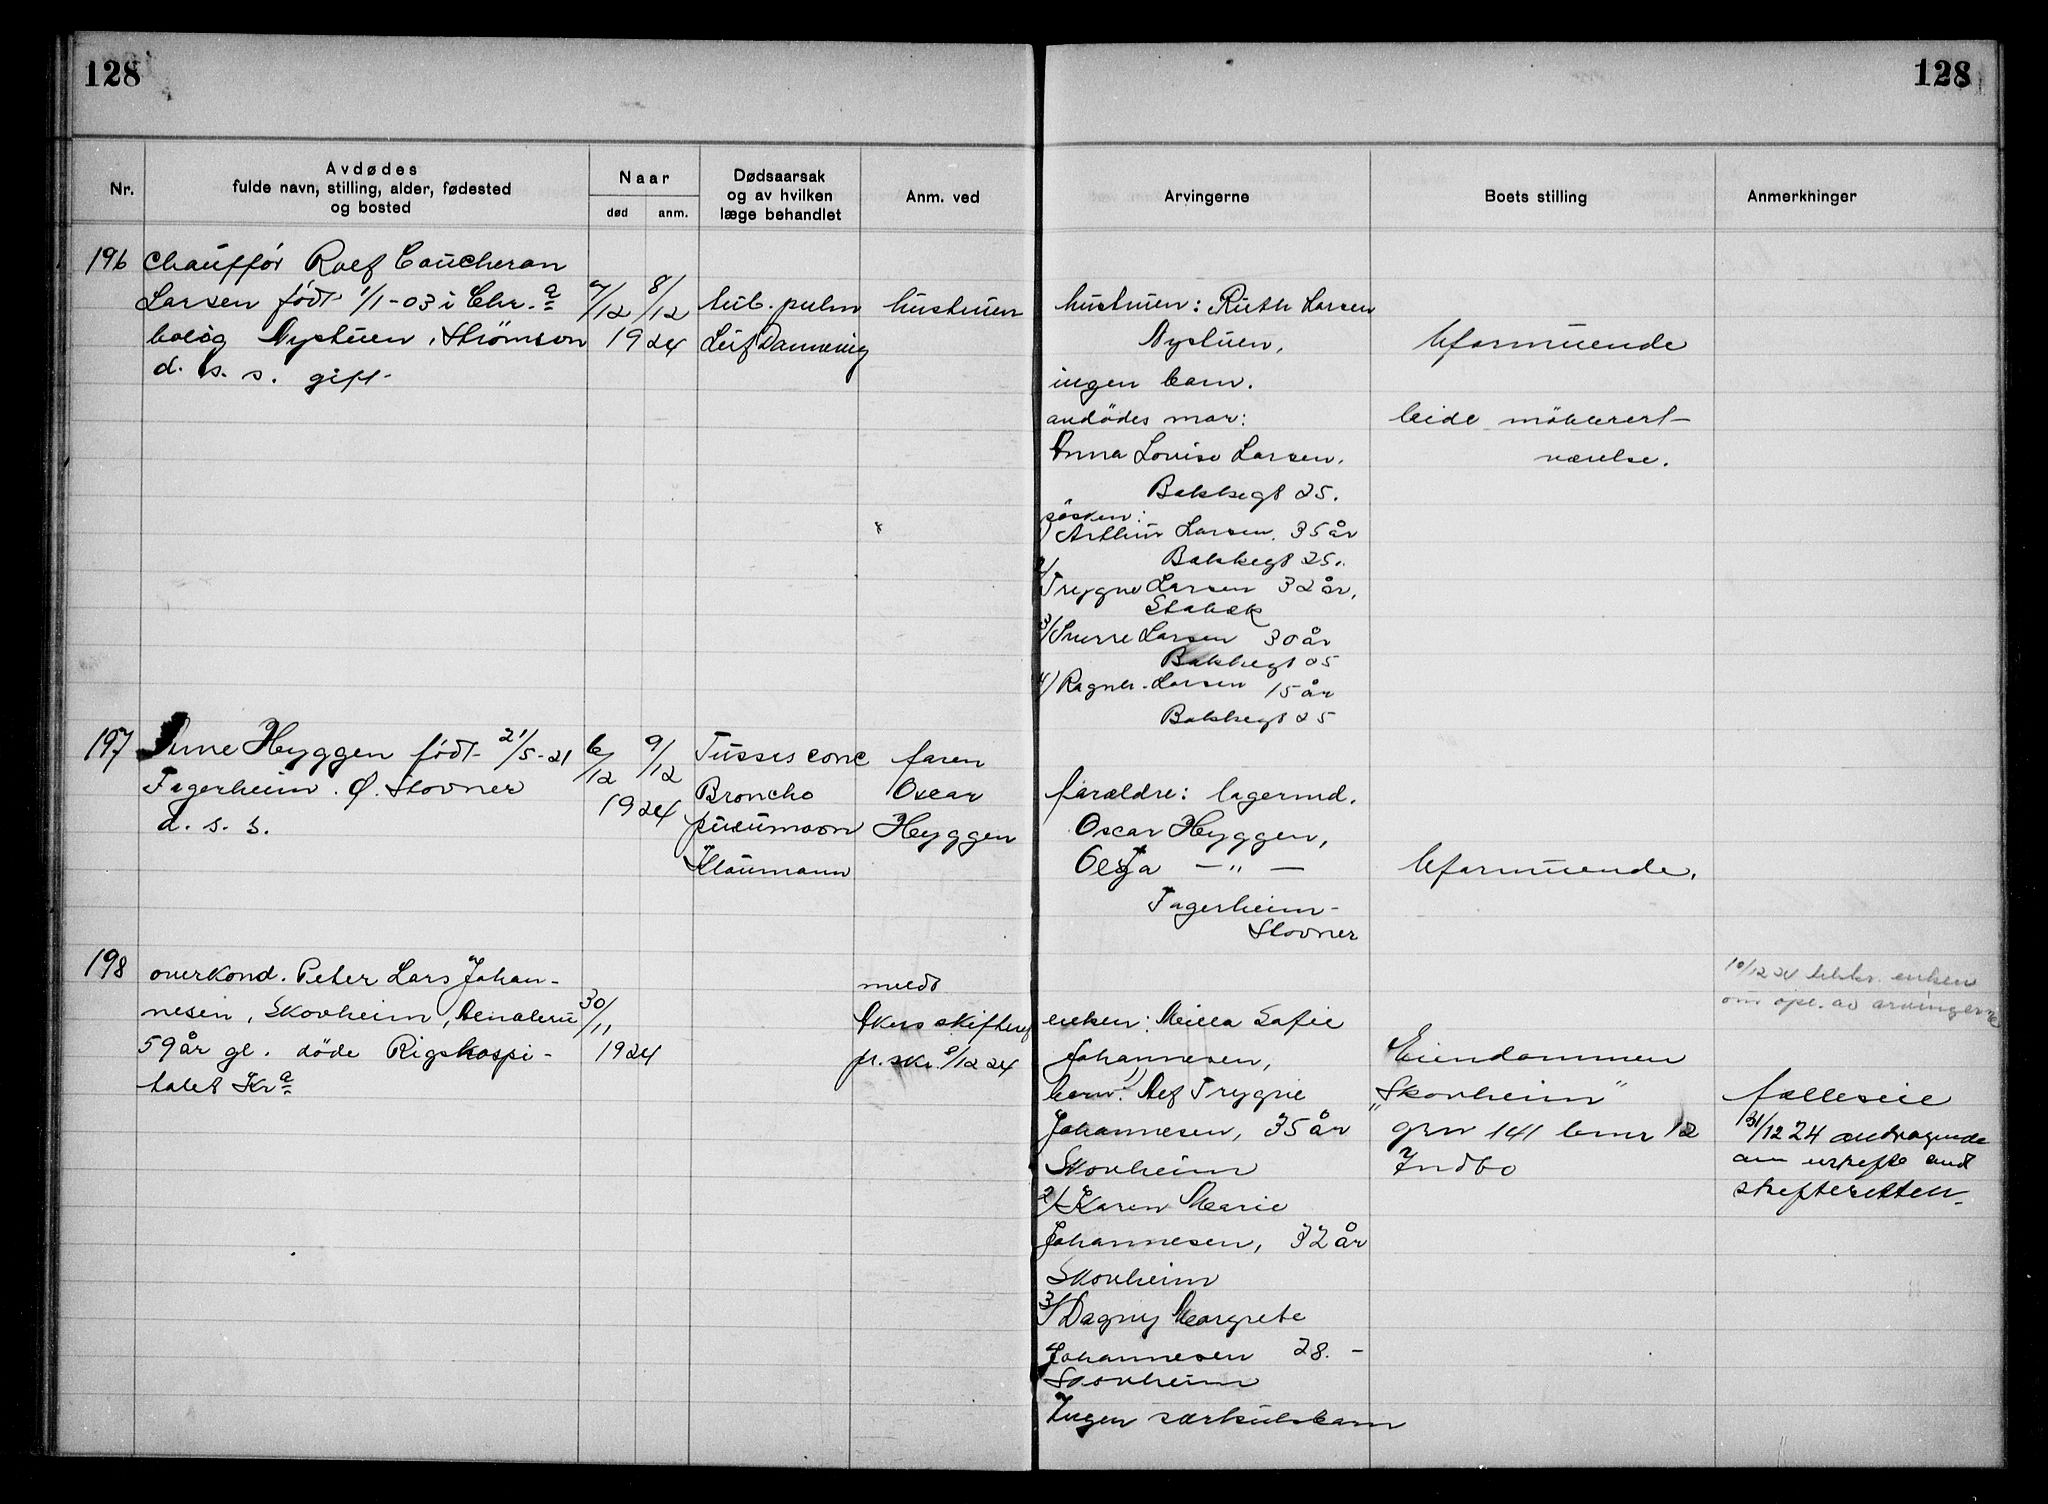 128
128
Nr.
Avdødes
fulde navn, stilling, alder, fødested
og bosted
Naar
død
anm.
Dødsaarsak
og av hvilken
læge behandlet
Anm. ved
Arvingerne
Boets stilling
Anmerkninger
196
Chauffør Rolf Coucheron
Larsen født 1/1-03 i Chr.a
bolig Nystuen, Strømsvn
d. s. s. gift
7/12 8/12
1924
tub. pulm
Leif
hustruen
hustruen: Ruth Larsen
Nystuen,
ingen barn.
avdødes mor:
Anna Louise Larsen,
Bakkegt 25.
søsken:
1) Arthur Larsen, 35 år
Bakkegt 25.
2/
Trygve Larsen 32 år,
Stabæk
3/ Sverre Larsen 30 år
Bakkegt 25
4) Ragnh. Larsen 15 år
Bakkegt 25
Uformuende
leide møblerert
værelse.
197
Hyggen født 21/5-21
Fagerheim. Ø. Stovner
d. s. s.
6/12 9/12
1924
Tussis conc
Broncho
pneumoni
Klaumann
faren
Oscar
Hyggen
forældre: lagermd.
Oscar Hyggen,
Olga — " —
Fagerheim
Stovner
Uformuende.
198
overkond. Peter Lars Johan-
nesen, Skovheim,
59 år gl. døde Rigshospi-
talet Kr.a
30/11
1924
meldt
Akers skifteret
pr. skr. 9/12 24
enken: Milla Sofie
Johannesen,
barn: 1) Alf Trygve
Johannesen, 35 år
Skovheim
2/ Karen Marie
Johannesen, 32 år
Skovheim
3/ Dagny Margrete
Johannesen 28. —
Skovheim
Ingen særkulsbarn
Eiendommen
"Skovheim"
grn 141 brnr 12
Indbo
10/12 24 tilskr. enken
om opl. av arvingerne
fælleseie
31/12 24 andragende
om uskifte
skifteretten.